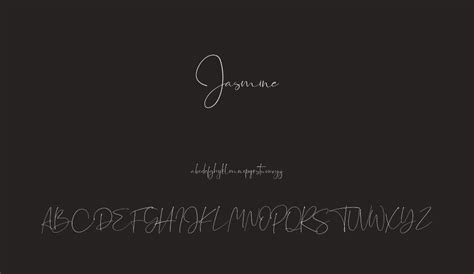 Jasmine
abcdefghijklmnopqrstuvwxyz
ABCDEFGHIJKLMNOPQRSTUVWXYZ